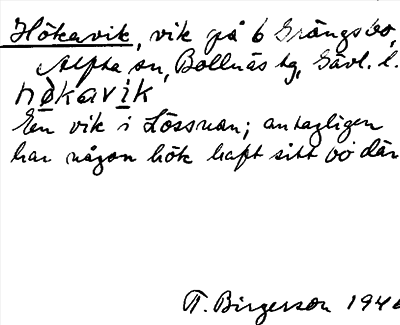 Hökavik, vik på 6 Grängsbo,
Alfta sn, Bollnäs tg, Gävl. l.
hø̀kavik
En vik i Lössnan; antagligen
har någon hök haft sitt bo där
T. Birgerson 1946